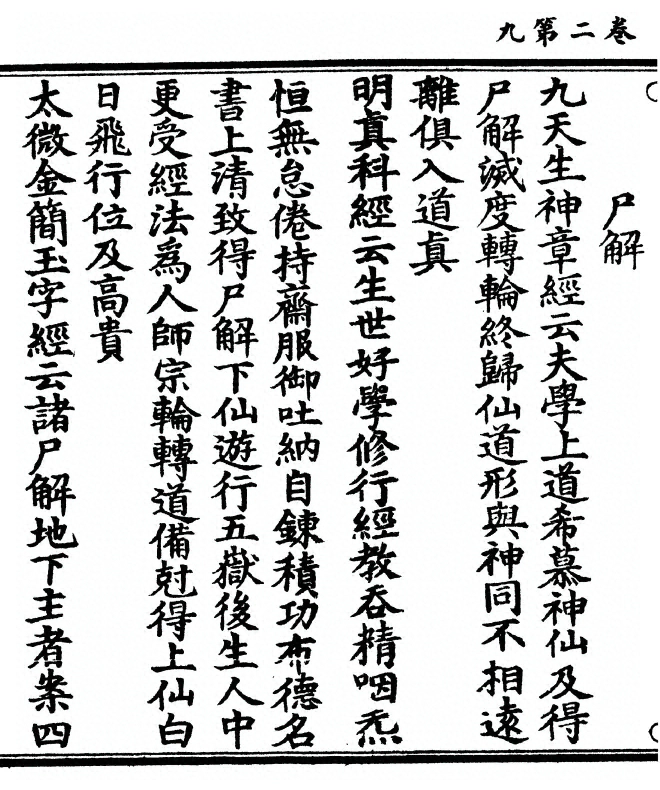 九第二卷
尸解
九天生神章經云夫學上道希慕神仙及得
尸解滅度轉輪終歸仙道形與神同不相遠
離俱入道真
明真科經云生世好學修行經教吞精咽炁
恒無怠倦持齋服御吐納自鍊積功布德名
書上清致得尸解下仙遊行五嶽後生人中
更受經法為人師宗輪轉道備尅得上仙白
日飛行位及高貴
太微金簡玉字經云諸尸解地下主者案四